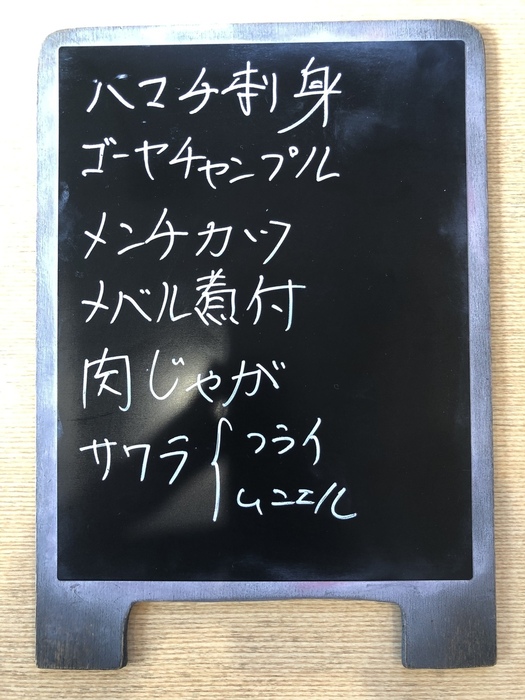 ハマチ刺身
ゴーヤチャンプル
メンチカツ
メバル煮付
肉じゃが
サワラ{フライ
ムニエル